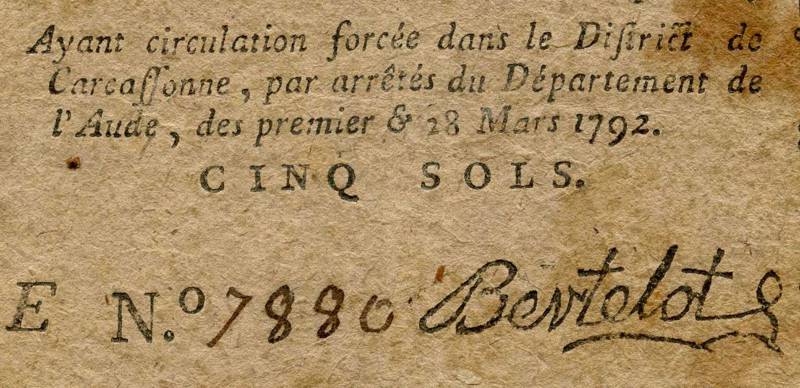 Ayant circulation forcée dans le Diſtrict de
Carcaſſonne, par arrêtés du Département de
l'Aude, des premier & 28 Mars 1792.
CINQ SOLS.
E N.º 7880 Bertelot